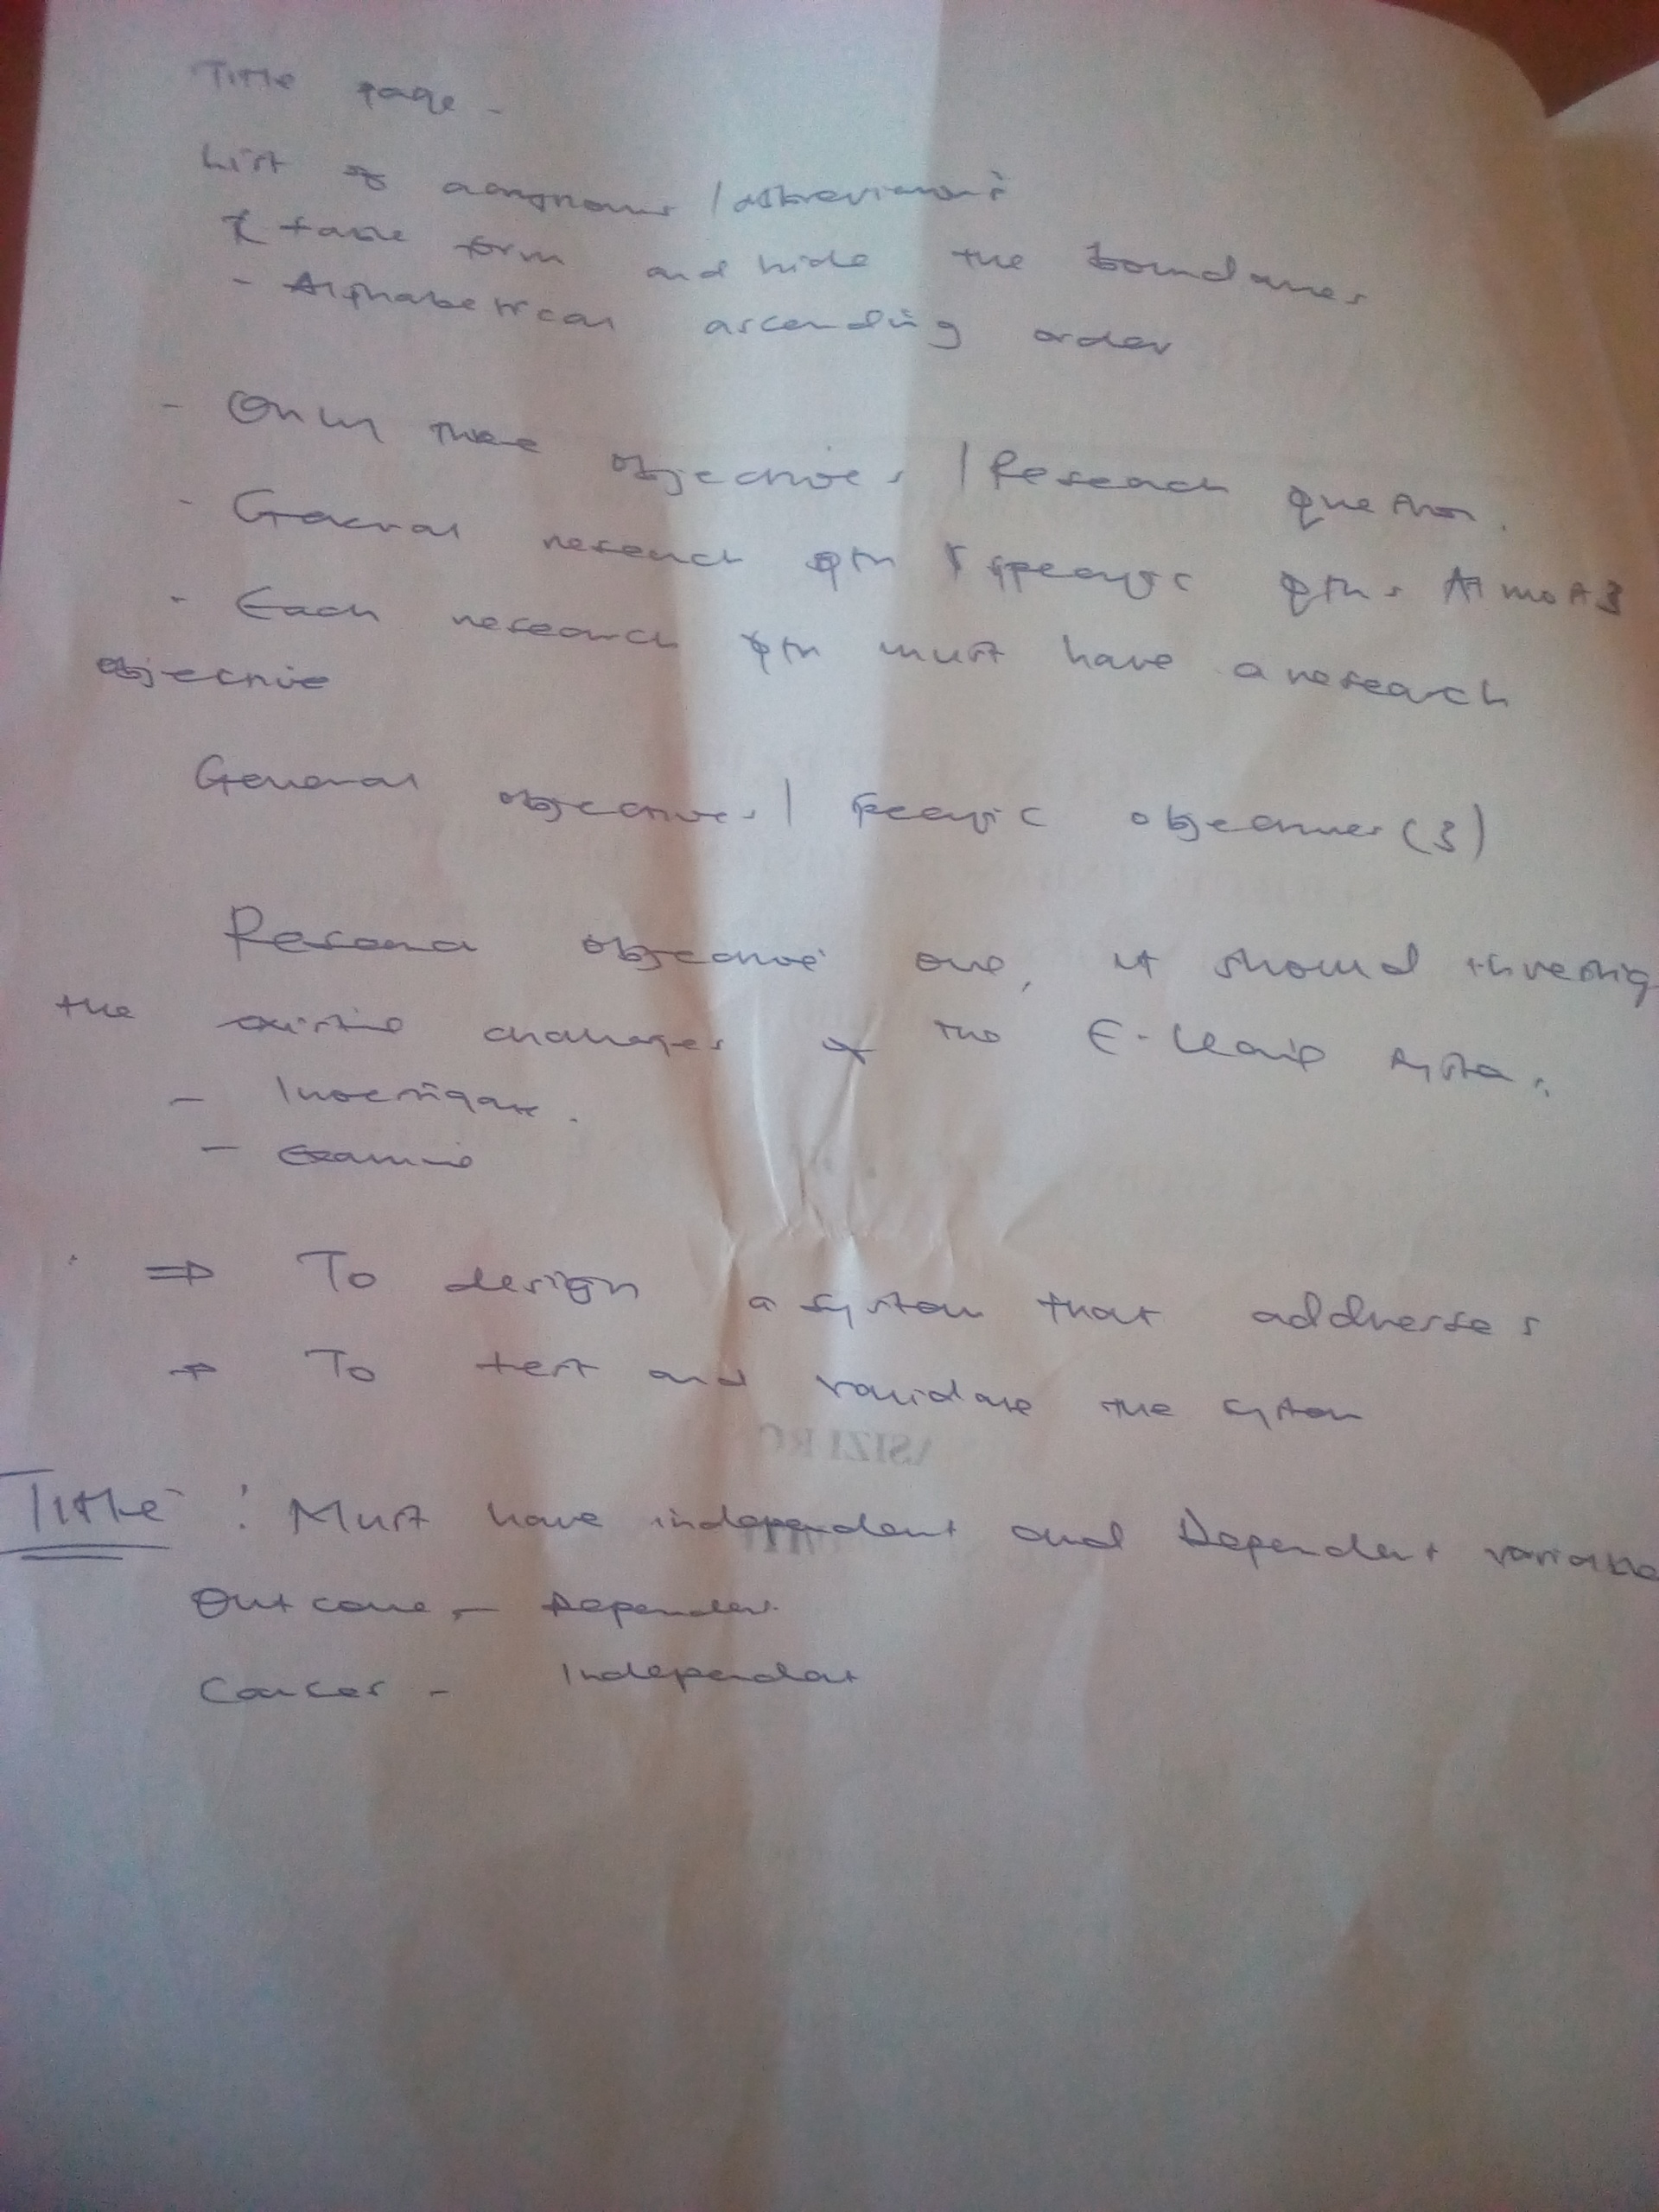 Title page -
List of acronyms / abbreviations
* table form and hide the boundaries
- Alphabetical ascending order
- Only three objectives / Research question.
- General research qtn & specific qtns At most 3
- Each research qtn must have a research
objective
General objectives / specific objectives (3)
Research objective one, it should investig
the existing challenges of the E-learning system.
- Investigate.
- Examine
⇒ To design a system that addresses
→ To test and validate the system
Title : Must have independent and Dependent variable
Outcome - Dependent
Causes - Independent